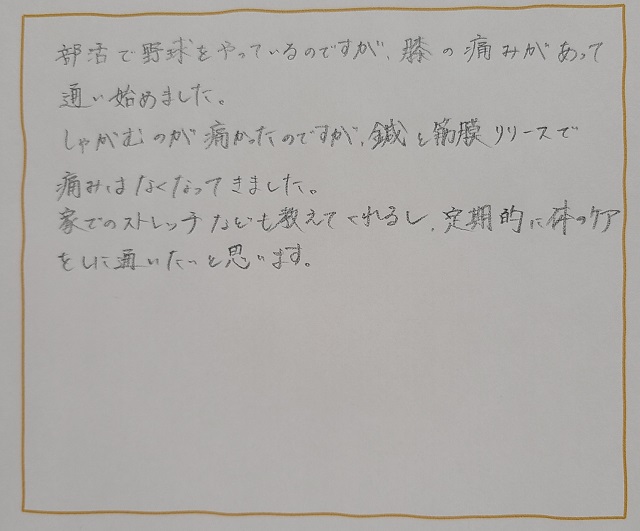 部活で野球をやっているのですが、膝の痛みがあって
通い始めました。
しゃがむのが痛かったのですが、鍼と筋膜リリースで
痛みはなくなってきました。
家でのストレッチなども教えてくれるし、定期的に体のケア
をしに通いたいと思います。